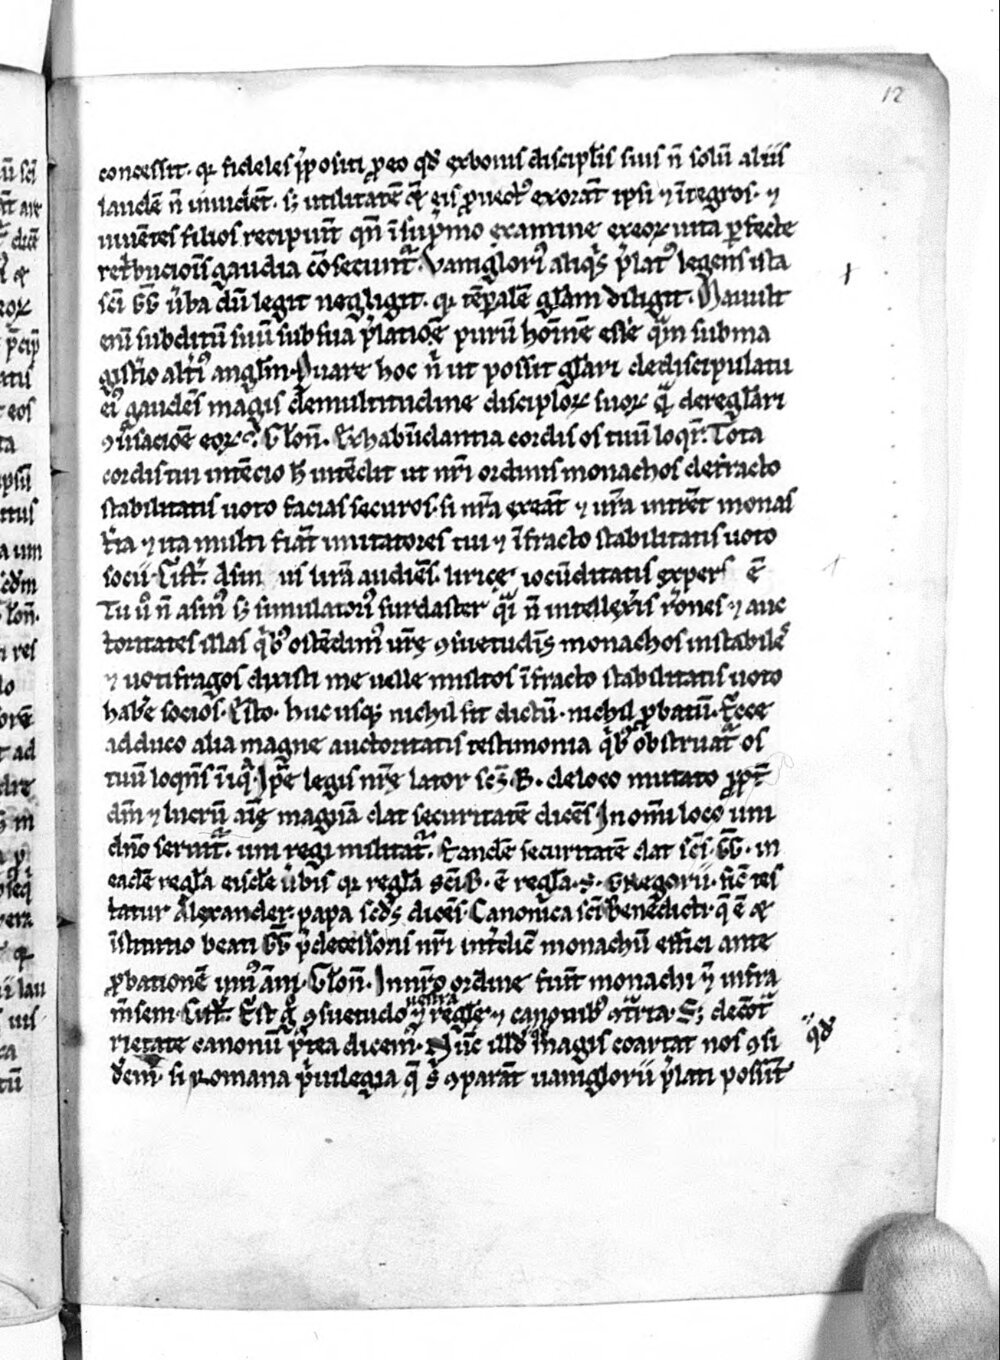 12
concessit. qr fideles p̄positi ꝓ eo qđ ex bonis discipl̄is suis n̄ solū aliis
laudē n̄ inuidēt. s; utilitatē &  eis ꝓuect⁹ exorāt ipsi ⁊ īntegros. ⁊
uiuētes filios recipiūt qn̄ ī sup̄mo examine ex eoꝝ uita ꝑfecte
ret̄bucionis gaudia cōsecunt᷑. Vaniglori⁹ aliq̄s p̄lat⁹ legens ista
sc̄i GḠ ūba dū legit negligit. qr tēꝑalē gl̄am diligit. Mauult
eni subditū suū sub sua p̄latiōe purū hoīnē esse q̄m sub ma
gisterio alt̄i⁹ angl̄m. Quare hoc n̄ ut possit gl̄ari de discipulatu
ei⁹ gaudens magis de multitudine disciploꝝ suoꝝ q̄ de regl̄ari
ꝯūsacioē eoꝝ? Clōn. Ex habūdantia cordis os tuū loqr̄. Tota
cordis tui intēcio h̄ intēdit ut nr̄i ordinis monachos de fracto
stabilitatis uoto facias securos. si nr̄a exeāt ⁊ ur̄a intrēt monas
t̄ia ⁊ ita multi fiāt imitatores tui ⁊ īfracto stabilitatis uoto
socii. Cist̄. Asin us lirā audiēs. lirice iocūditatis expers ē
Tu ū n̄ asin⁹ s; simulatori⁹ surdaster q̄i n̄ intellex̄is r̄ones ⁊ auc
toritates illas q̄b⁹ ostēdim⁹ ur̄ę ꝯsuetudīs monachos instabiles
⁊ uotifragos dixisti me uelle multos īfracto stabilitatis uoto
habere socios. Esto. huc usq; nichil sit dictū. nichil ꝓbatū. Ecce
adduco alia magne auctoritatis testimonia q̄b⁹ obstruat᷑ os
tuū loqn̄s īiq̄. Ip̄e legis nr̄ę lator sc̄s. B. de loco mutato ꝓpt̄
dm̄ ⁊ lucrū aīę magnā dat securitatē dicēs In omī loco uni
dn̄o seruit᷑. uni regi militat᷑. Eandē securitatē dat sc̄s. GḠ. in
eadē regl̄a eisdē ūbis qr regl̄a sc̄i. B. ē regl̄a. S. Gregorii. sic tes
tatur Alexander. papa scd̄s dicēs. Canonica sc̄i Benedicti. q̄ ē &
īstitutio beati GḠ p̄decessoris nr̄i int̄dic̄ monachū effici ante
ꝓbationē uni⁹ ām. Clōn. In nr̄o ordine fiūt monachi ⁊ infra
m̄sem. Cist̄. Est g̊ ꝯsuetudo uestra ⁊ regl̄ę ⁊ canonib⁹ ꝯt̄ria. S; de cōt̄
rietate canonū p̄tea dicem⁹. Nūc illđ magis coartat nos ꝯsi
qđ
dem⁹. si Romana p̄uilegia q̄ s̄ ꝯparāt uaniglorii p̄lati possūt